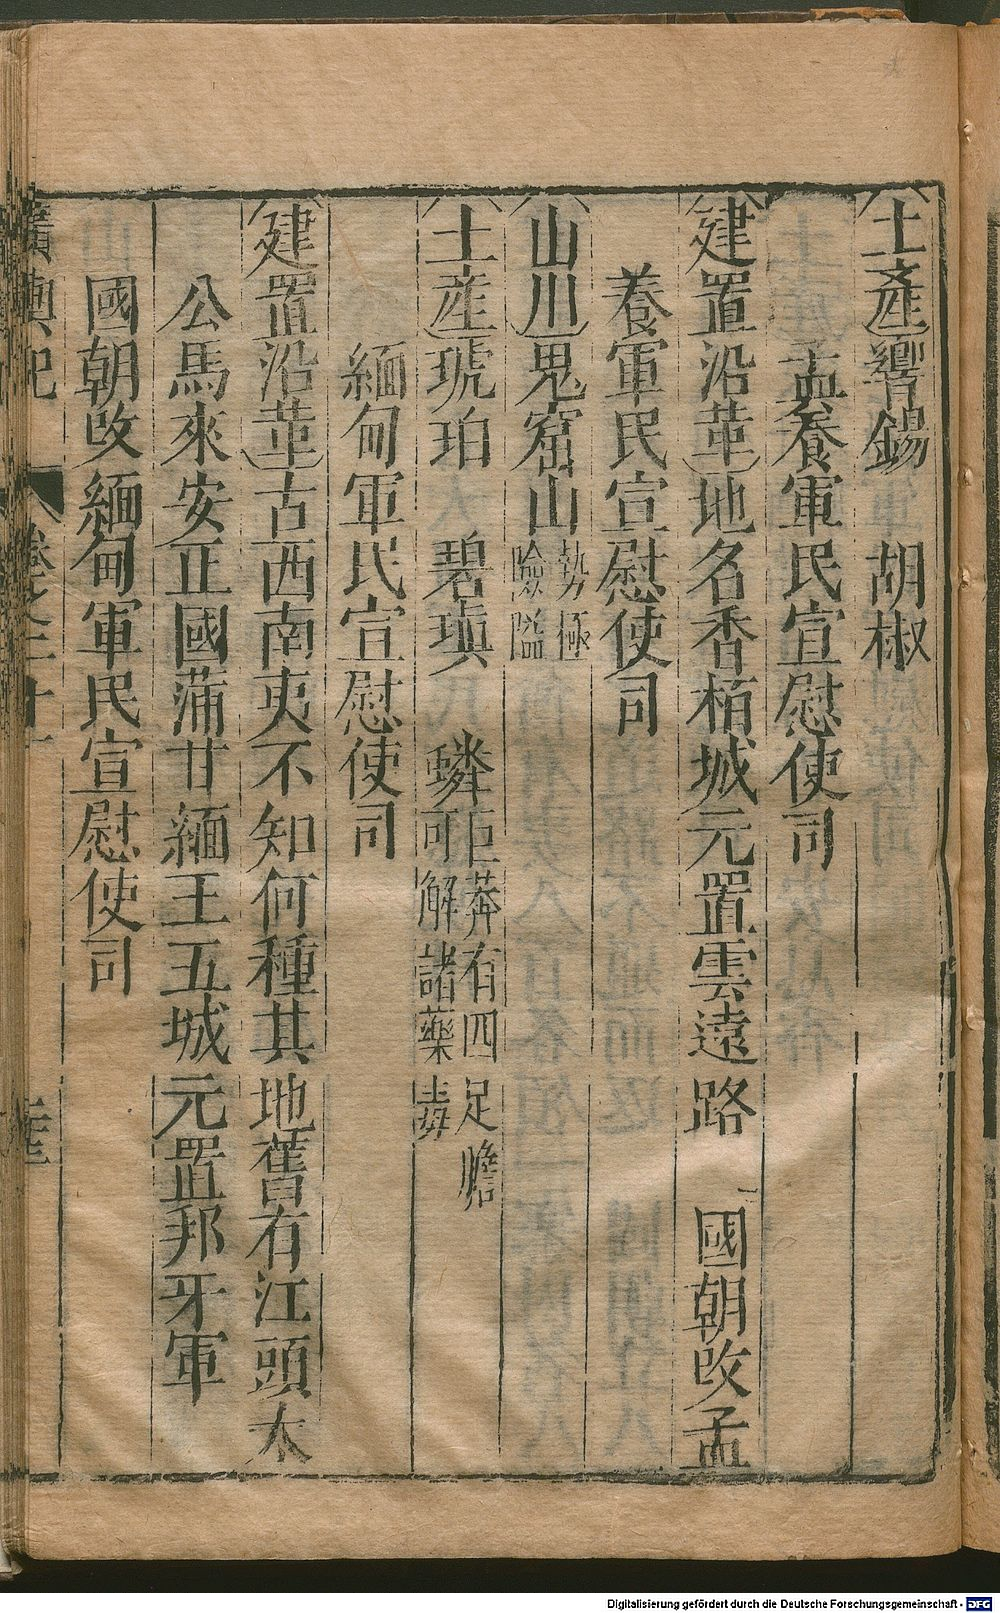 土產響錫　胡椒
孟養軍民宣慰使司
建置沿革地名香栢城元置雲遠路　國朝改孟
養軍民宣慰使司
山川鬼窟山勢極險隘
土産琥珀　碧瑱　蟒巨蟒有四足膽可解諸藥毒
緬甸軍民宣慰使司
建置沿革古西南夷不知何種其地舊有江頭太
公馬來安正國蒲甘緬王五城元置邦牙軍
國朝改緬甸軍民宣慰使司
廣輿記　卷之二十一
Digitalisierung gefördert durch die Deutsche Forschungsgemeinschaft - DFG